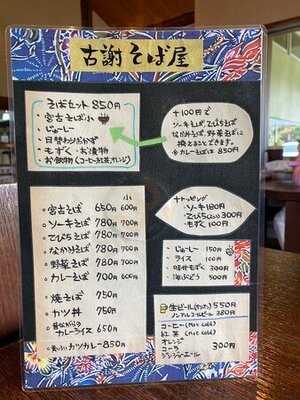 古謝そば屋
そばセット 850円
・宮古そば小
・じゅーしー
・日替わりおかず
・もずく・お漬物
・お飲物(コーヒー,紅茶,オレンジ)
+100円で
ソーキそば、てびちそば
なかみそば、野菜そばに
換えることできます。
※カレーそばは 850円
小
宮古そば 650円 600円
ソーキそば 780円 700円
てびちそば 780円 700円
なかみそば 780円 700円
野菜そば 780円 700円
カレーそば 700円 600円
焼そば 750円
カツ丼 750円
カレーライス 650円
カツカレー 850円
トッピング
ソーキ 180円
てびち(2コ) 300円
もずく 100円
じゅーしー 150円
ライス 100円
味付もずく 300円
海ぶどう 500円
生ビール 550円
ノンアルコールビール 380円
コーヒー(Hot Cold)
紅茶(Hot Cold)
オレンジ
コーラ 300円
ジンジャーエール